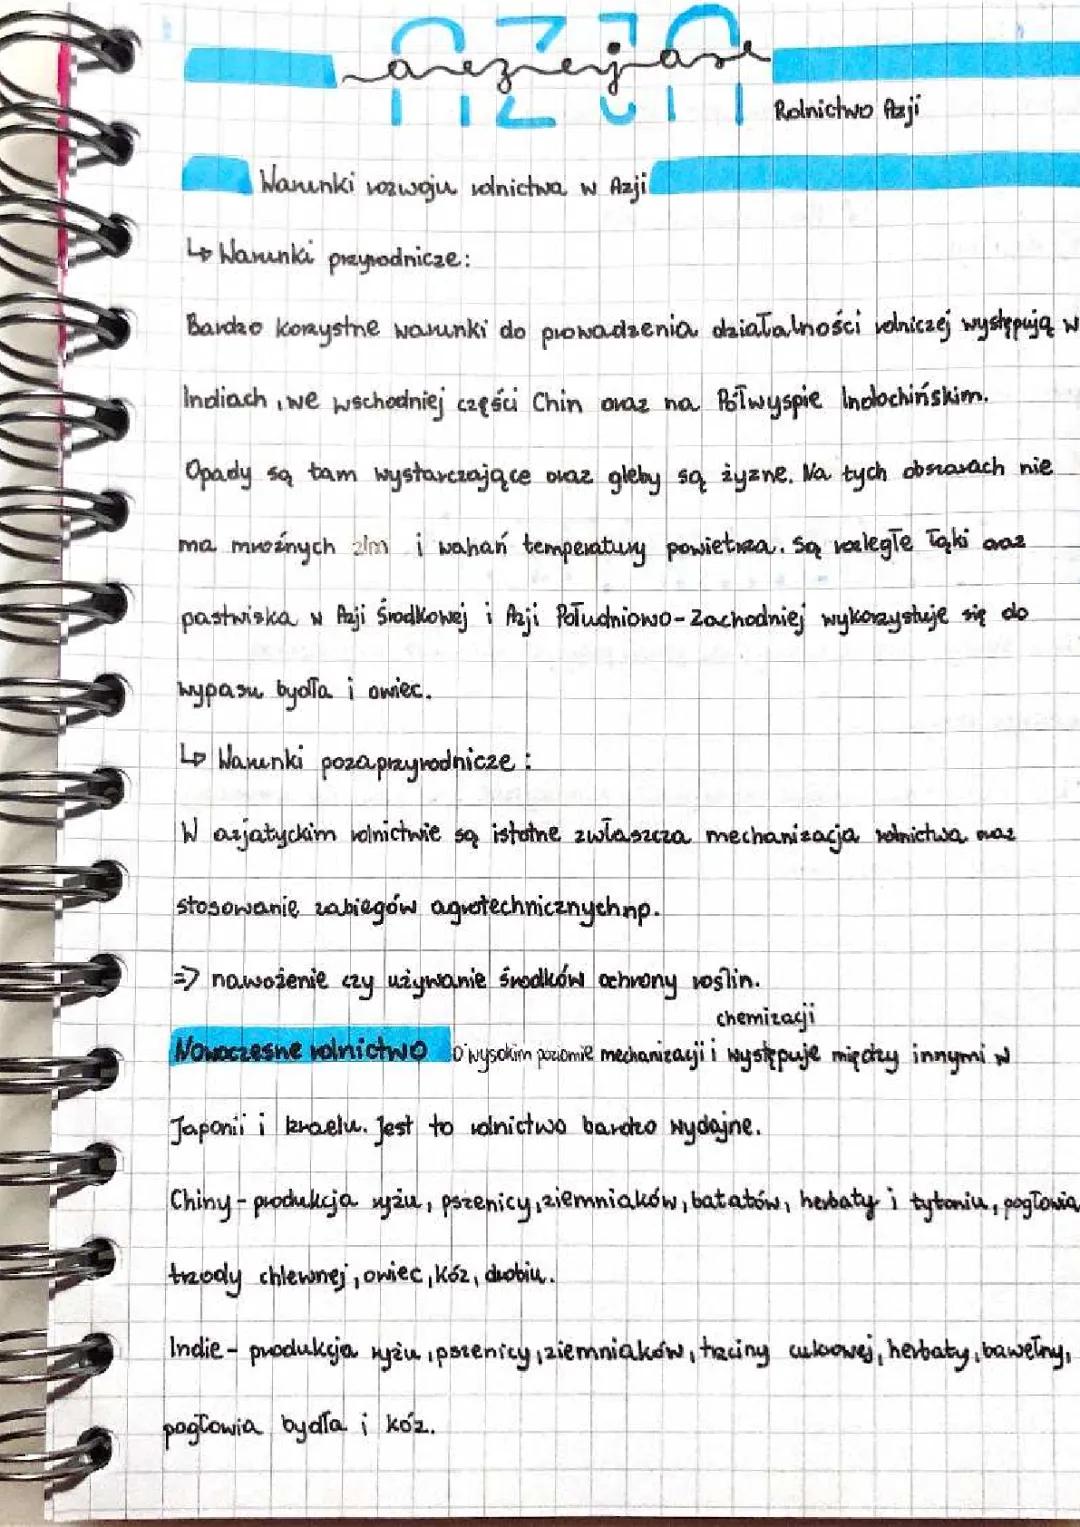 AZJA
Rolnictwo Azji
Warunki rozwoju rolnictwa w Azji
↳ Warunki przyrodnicze:
Bardzo korzystne warunki do prowadzenia działalności rolniczej występują w
Indiach, we wschodniej części Chin oraz na Półwyspie Indochińskim.
Opady są tam wystarczające oraz gleby są żyzne. Na tych obszarach nie
ma mroźnych zim i wahań temperatury powietrza. Są rozległe łąki oraz
pastwiska w Azji Środkowej i Azji Południowo-Zachodniej wykorzystuje się do
wypasu bydła i owiec.
↳ Warunki pozaprzyrodnicze:
W azjatyckim rolnictwie są istotne zwłaszcza mechanizacja rolnictwa oraz
stosowanie zabiegów agrotechnicznych np.
=> nawożenie czy używanie środków ochrony roślin.
chemizacji
Nowoczesne rolnictwo o wysokim poziomie mechanizacji i występuje między innymi w
Japonii i Izraelu. Jest to rolnictwo bardzo wydajne.
Chiny - produkcja ryżu, pszenicy, ziemniaków, batatów, herbaty i tytoniu, pogłowia
trzody chlewnej, owiec, kóz, drobiu.
Indie - produkcja ryżu, pszenicy, ziemniaków, trzciny cukrowej, herbaty, bawełny,
pogłowia bydła i kóz.